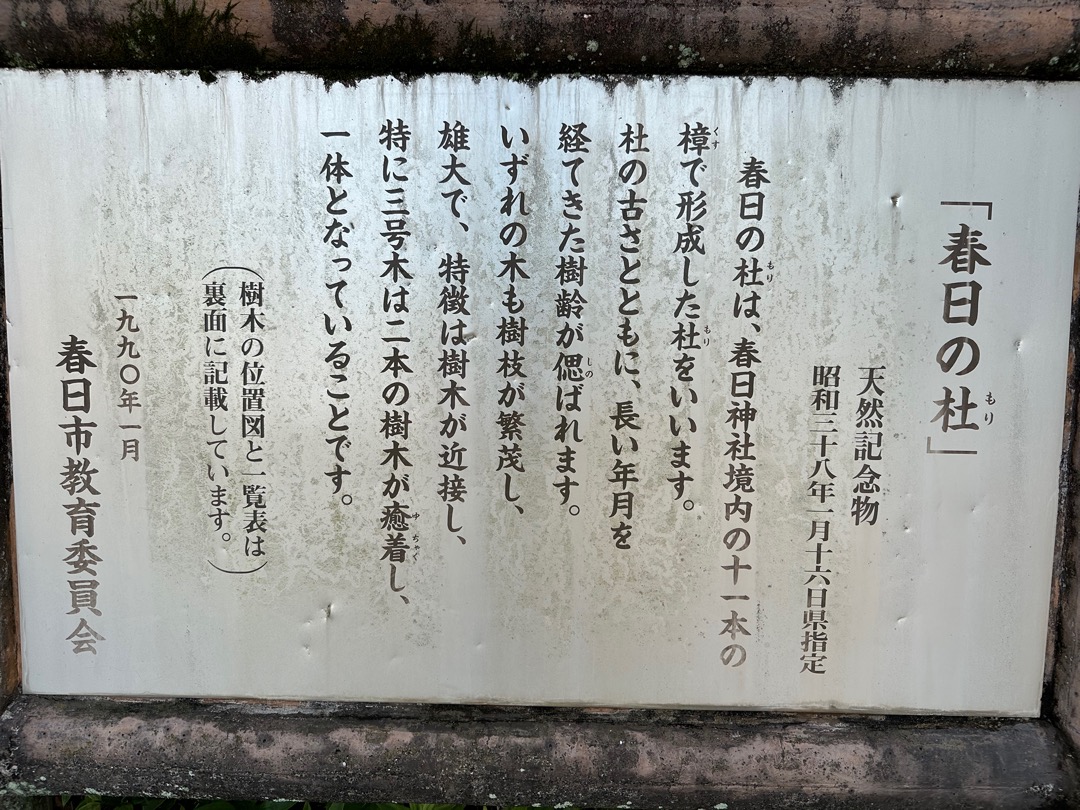 「春日の杜」
天然記念物
昭和三十八年一月十六日県指定
春日の杜は、春日神社境内の十一本の
樟で形成した杜をいいます。
杜の古さとともに、長い年月を
経てきた樹齢が偲ばれます。
いずれの木も樹枝が繁茂し、
雄大で、特徴は樹木が近接し、
特に三号木は二本の樹木が癒着し、
一体となっていることです。
（樹木の位置図と一覧表は
裏面に記載しています。）
一九九〇年一月
春日市教育委員会